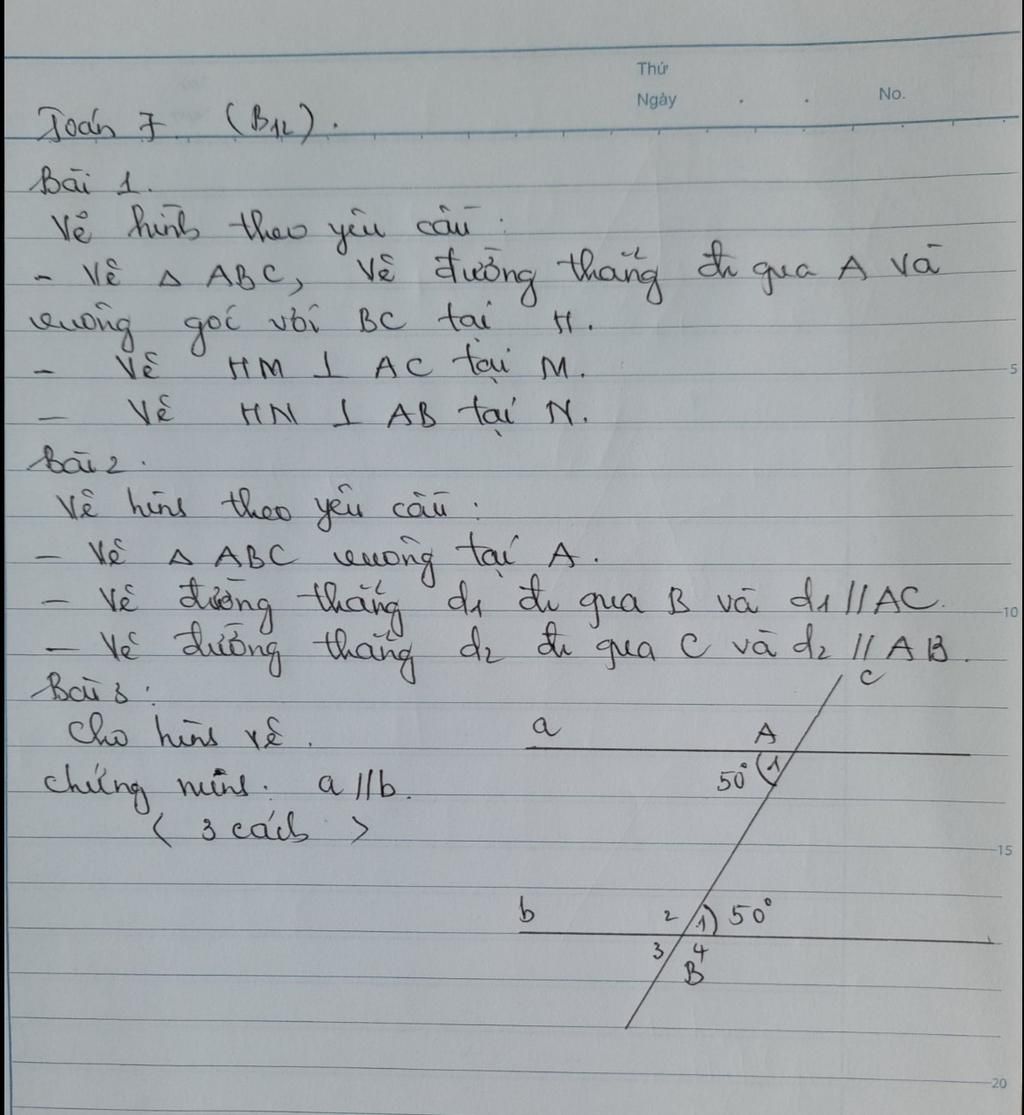 Thứ
Ngày . . No.
Toán 7. (B12).
Bài 1.
Vẽ hình theo yêu cầu:
- Vẽ △ ABC, Vẽ đường thẳng đi qua A và
vuông góc với BC tại H.
- Vẽ HM ⊥ AC tại M.
- Vẽ HN ⊥ AB tại N.
5
Bài 2.
Vẽ hình theo yêu cầu:
- Vẽ △ ABC vuông tại A.
- Vẽ đường thẳng d1 đi qua B và d1 // AC.
10
- Vẽ đường thẳng d2 đi qua C và d2 // AB.
Bài 3:
c
Cho hình vẽ.
a A
chứng minh: a // b.
50° 1
( 3 cách )
15
b 2 1 50°
3 4
B
20